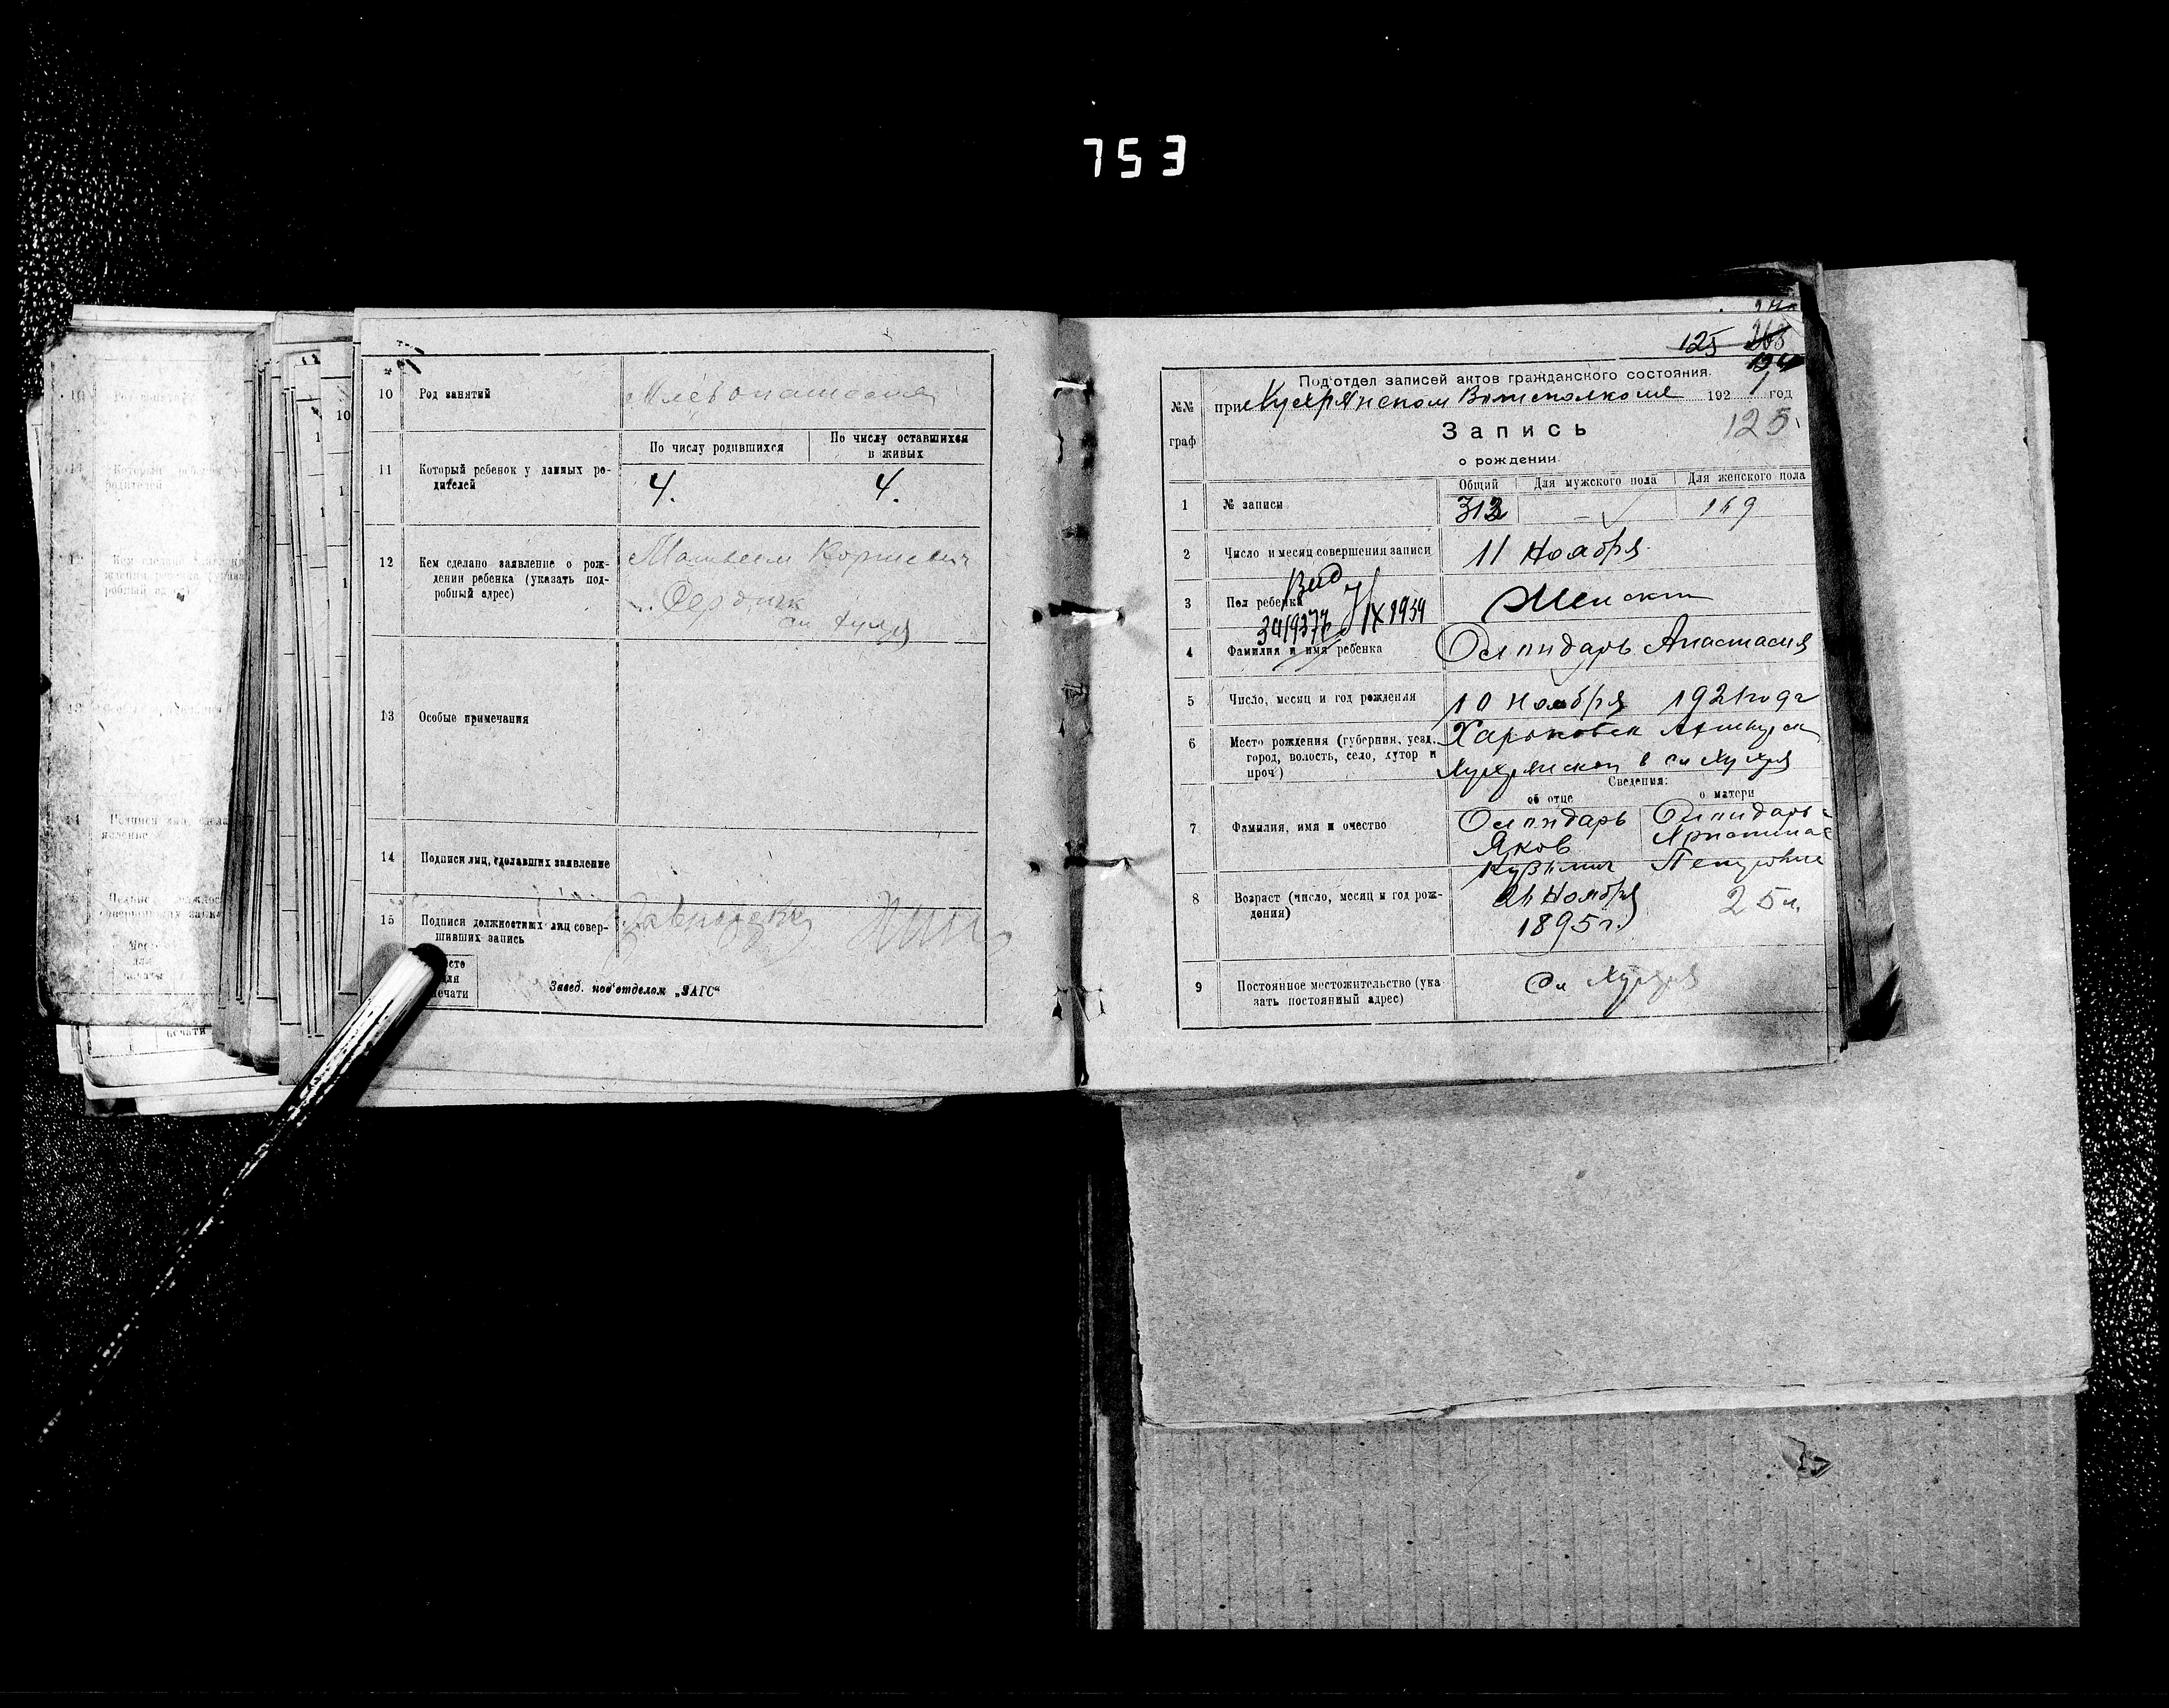 753
10 Род занятий
Хлебопашество
11 Который ребенок у данных ро-
дителей
По числу родившихся
По числу оставшихся
в живых
4. 4.
12 Кем сделано заявление о рож-
дении ребенка (указать под-
робный адрес)
Матвеем
Сердюк
сл Хухря
13 Особые примечания
14 Подписи лиц, сделавших заявление
15 Подписи должностных лиц совер-
шивших запись
для
печати
Завед. под'отделом „ЗАГС“
125 268
№№
граф
Под'отдел записей актов гражданского состояния.
при Хухрянском Волисполкоме 1921 год
Запись
125.
о рождении.
1 № записи
Общий Для мужского пола Для женского пола
313 — 169
2 Число и месяц совершения записи
11 Ноября
3 Пол ребенка
Женский
IX 1939
4 Фамилия и имя ребенка
Анастасия
5 Число, месяц и год рождения
10 Ноября 1921 года
6 Место рождения (губерния, уезд,
город, волость, село, хутор и
проч)
Харьковск Ахтырск
Хухрянской в сл Хухря
Сведения:
об отце о матери
7 Фамилия, имя и очество
Яков
Кузьмич
8 Возраст (число, месяц и год рож-
дения)
Ноября
1895 г.
25 л.
9 Постоянное местожительство (ука
зать постоянный адрес)
Сл Хухря